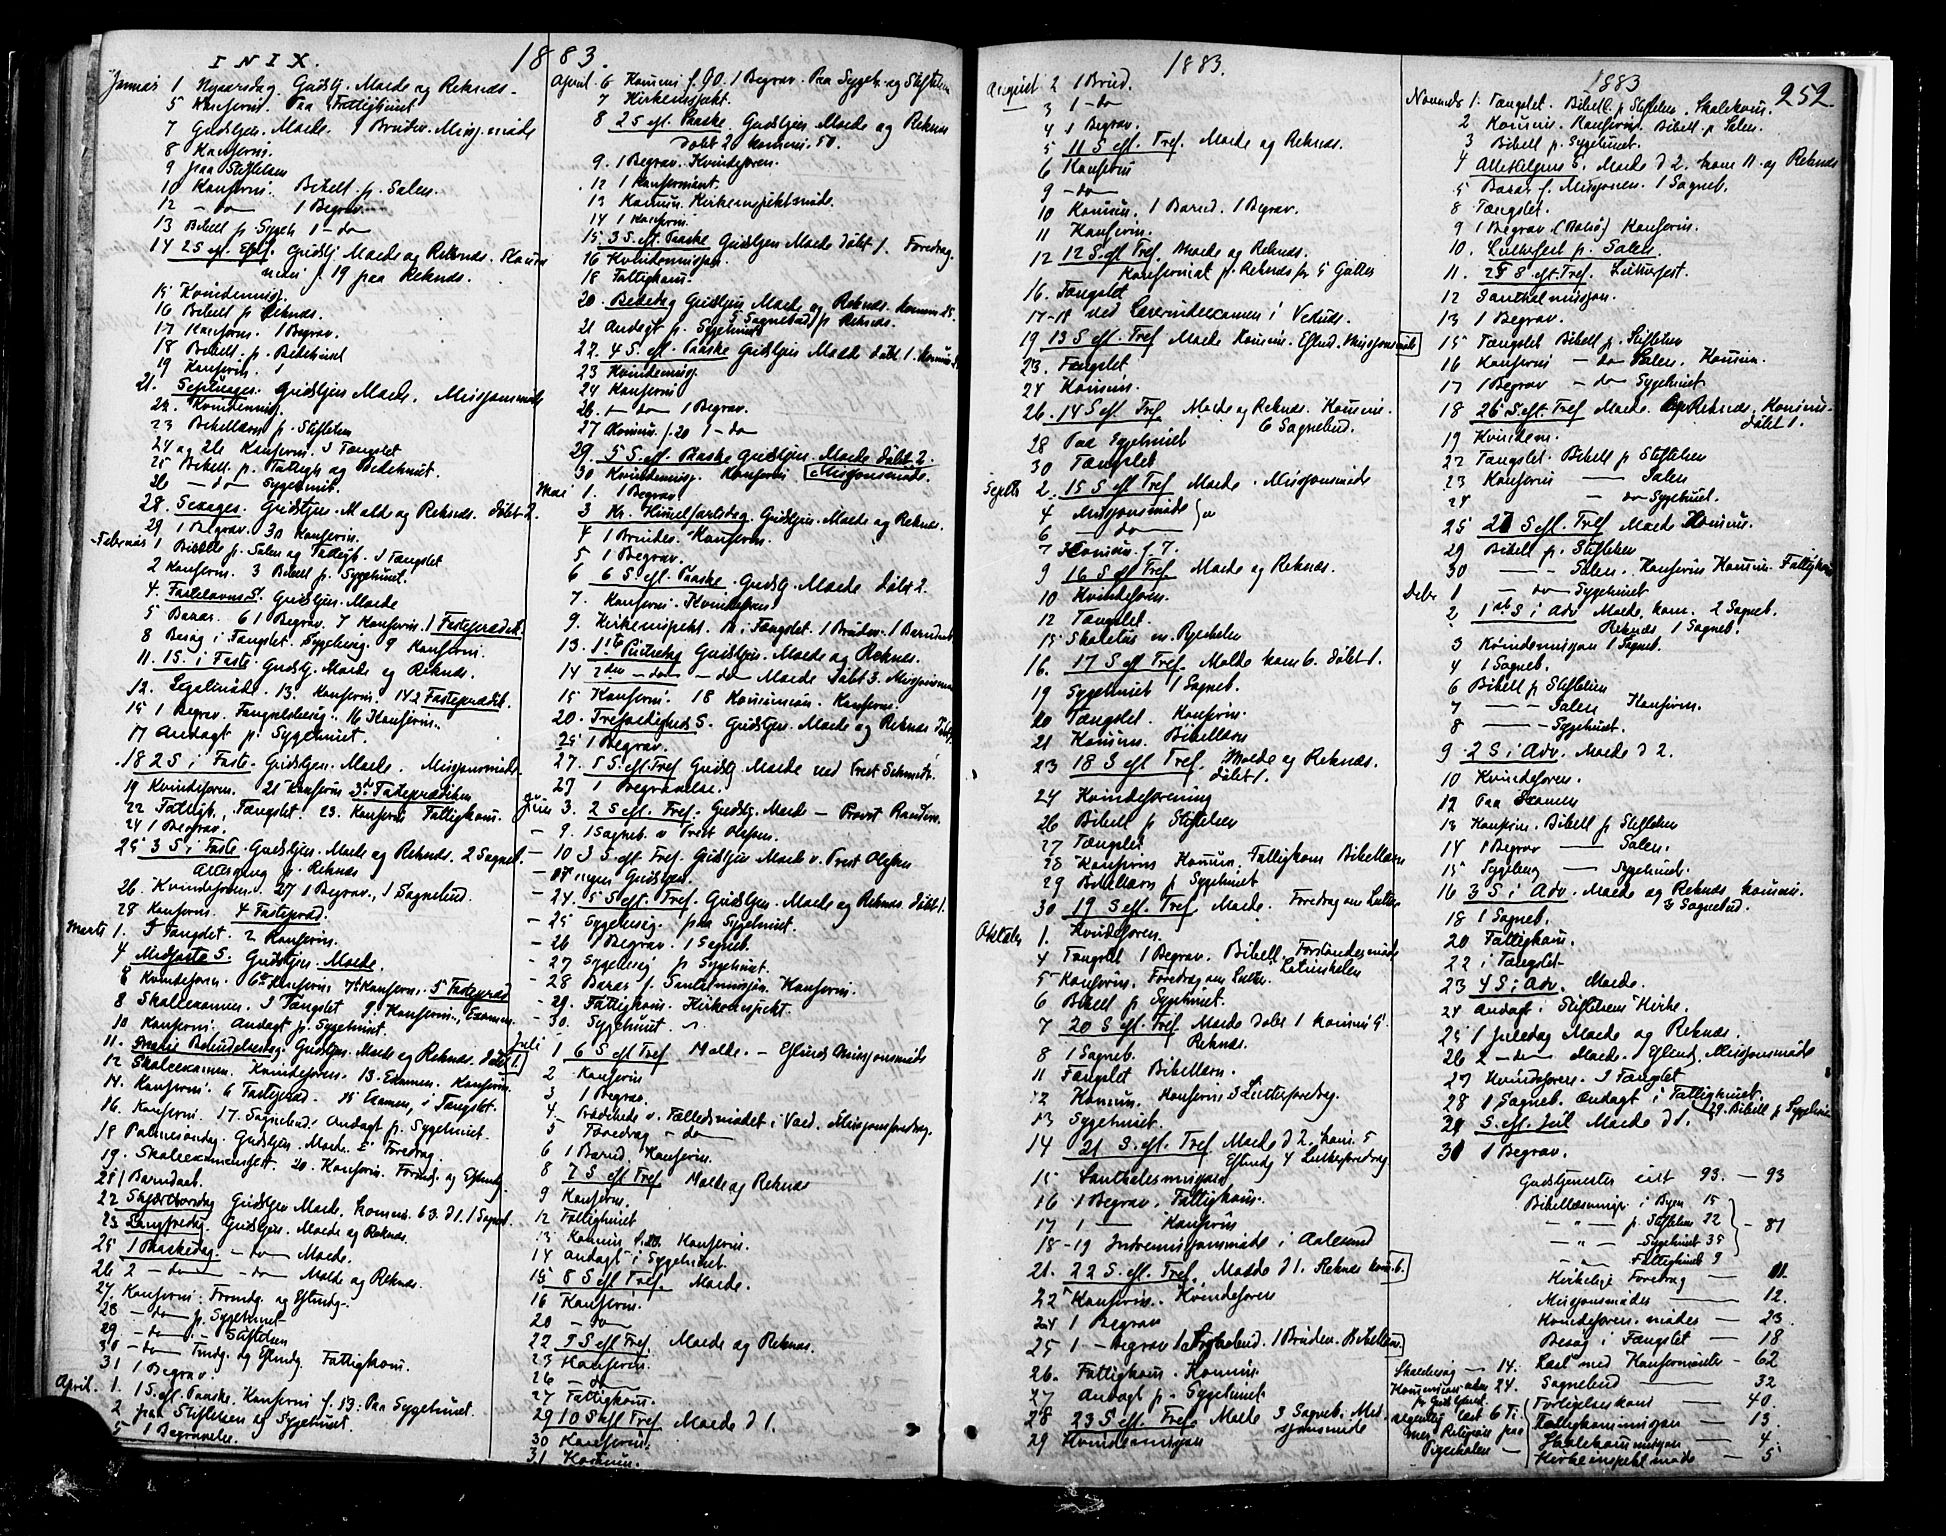 I N I X.
1883.
Januar 1 Nyaarsdag. Gudstj. Molde og Reknæs.
5 Konfirm. Paa Fattighuset
7 Gudstjen. Molde. 1 Brudev. Missj.møde
8 Konfirm.
9 paa Stiftelsen
10 Konfirm. Bibell. p. Salen.
12 — do — 1 Begrav.
13 Bibell p Sygeh 1 — do
14 2 S. eft. Epif. Gudstj Molde og Reknæs.
f. 19 paa Reknæs.
15 Kvindemissj.
16 Bibell p Reknæs.
17 Konfirm. 1 Begrav.
18 Bibell. p. Bedehuset
19 Konfirm. 1
21. Septuages. Gudstjen Molde. Missjonsmøde
22. Kvindemissj.
23 Bibellæsn p. Stiftelsen
24 og 26 Konfirm. I Fængslet
25 Bibell. p. Fattigh og Bedehuset.
26 — do — Sygehuset.
28. Sexages. Gudstjen. Molde og Reknæs. Døbt 2.
29 1 Begrav. 30 Konfirm.
Februar 1 Bibell p. Salen og Fattigh. I Fængslet
2 Konfirm. 3 Bibell p. Sygehuset.
4. Fastelavns S. Gudstjen. Molde
5 Bazar. 6 1 Begrav. 7 Konfirm. 1 Fasteprædik.
8 Besøg i Fængslet. Sygebesøg. 9 Konfirm.
11. 1 S. i Faste. Gudstj. Molde og Reknæs.
12. 13. Konfirm. 14 2 Fasteprædik.
15 1 Begrav. Fængselsbesøg. 16 Konfirm.
17 Andagt p. Sygehuset.
18 2 S i Faste. Gudstjen. Molde. Missjonsmøde
19 Kvindeforen. 21 Konfirm 3die Fasteprædiken
22 Fattigh., Fængslet. 23. Konfirm Fattigkom.
24 1 Begrav.
25 3 S. i Faste. Gudstjen. Molde og Reknæs. 2 Sognebd.
Altergang p. Reknæs
26. Kvindeforen. 27 1 Begrav., 1 Sognebud
28 Konfirm. 4 Fastepræd.
Marts 1. I Fængslet. 2 Konfirm.
4 Midfaste S. Gudstjen. Molde.
5 Kvindeforen. 6 Konfirm 7 Konfirm. 5 Fastepræd
8 Skoleexamen. I Fængslet 9. Konfirm., Examen.
10 Konfirm. Andagt p. Sygehuset.
11. Marie Bebudelsesdag. Gudstjen. Molde og Reknæs. Døbt 1.
12 Skoleexamen. Kvindeforen. 13. Examen. Konfirm.
14. Konfirm. 6 Fastepræd. 15 Examen, i Fængslet.
16. Konfirm. 17. Sognebud. Andagt p. Sygehuset.
18 Palmesøndag. Gudstjen. Molde. Foredrag.
19. Skoleexamen. 20. Konfirm. Formdg. og Eftmdg.
21 1 Barndaab.
22 Skjærthorsdag Gudstjen Molde. komm. 63. d 1. 1 Sognebd.
23 Langfredag. Gudstjen. Molde og Reknæs.
25 1 Paaskedag. — do — Molde.
26 2 — do — — do — Molde og Reknæs.
27. Konfirm: Formdg. og Eftmdg.
28 — do — p. Sygehuset
29 — do — Stiftelsen
30 — do — Fmdg. og Eftmdg. Fattigkom.
31 1 Begrav.
April. 1. 1 S. eft. Paaske. Konfirm f. 13. Paa Sygehuset.
2 paa Stiftelsen og Sygehuset.
5 1 Begravelse.
April. 6 Komm. f. 90. 1 Begrav. Paa Sygeh. og Stiftelsen
7 Kirkeinspekt.
8 2 S eft. Paaske. Gudstjen. Molde og Reknæs
Døbt 2 komm. 50.
9. 1 Begrav. Kvindeforen.
12 1 Konfirmant.
13 Komm. Kirkeinspektmøde.
14 1 Konfirm.
15. 3 S. eft. Paaske Gudstjen Molde døbt 1. Foredrag.
16 Kvindemissjon.
18 Fattigkom.
20. Bededag Gudstjen Molde og Reknæs.
21 Andagt p. Sygehuset
22. 4 S. eft. Paaske Gudstjen Molde Døbt 1.
23 Kvindemissj.
24 Konfirm
26. — do — 1 Begrav.
27 Komm. f. 20 1 — do
29. 5 S. eft. Paaske Gudstjen. Molde Døbt 2.
30 Kvindemissj. Konfirm Missjonsmøde.
Mai 1. 1 Begrav.
3 Kr. Himmelfartsdag. Gudstjen. Molde og Reknæs.
4 1 Brudev. Konfirm.
5 1 Begrav.
6 6 S. eft. Paaske. Gudstj. Molde Døbt 2.
7. Konfirm. Kvindeforen
9. Kirkeinspekt. i Fængslet. 1 Brudev. 1 Barndaab
13. 1ste Pintsedag Gudstjen. Molde og Reknæs.
14 2den — do — — do — Molde Døbt 3. Missjonsmøde
15 Konfirm. 18 Kommunion. Konfirm.
20. Trefoldigheds S. Gudstjen. Molde og Reknæs
25 1 Begrav.
27. 1 S. eft Tref. Gudstj. Molde ved Prest Schmidt
29 1 Begravelse.
Juni 3. 2 S eft. Tref. Gudstj. Molde — Provst
— 9. 1 Sogneb. v Prest Olafsen.
— 10 3 S. eft. Tref. Gudstjen Molde v. Prest Olafsen
— 17 ingen Gudstjen.
— 24. 5 S eft. Tref. Gudstjen. Molde og Reknæs. Døbt 1.
— 25 Sygebesøg. paa Sygehuset.
— 26 1 Begrav. 1 Sogneb.
— 27 Sygebesøg p Sygehuset.
— 28 Bazar f. Santalmissjon. Konfirm.
— 29. Fattigkom. Kirkeinspekt.
— 30. Sygehuset
Juli 1 6 S eft Tref Molde. — Eftmd Missjonsmøde
2 Konfirm
3 1 Begrav.
4. v. Fællesmødet i Vold. Missjonsforedrag.
5 Foredrag — do —
6 1 Barnd. Konfirm.
8 7 S. eft Tref. Molde og Reknæs
9 Konfirm.
12 Fattighuset
13 Komm Konfirm.
14 Andagt i Sygehuset.
15 8 S eft Tref. Molde.
16 Konfirm.
20 — do —
22 9 S eft Tref. Molde og Reknæs.
23 Konfirm.
26 — do —
27 Fattigkom.
29 10 S eft Tref Molde d 1.
30 Konfirm.
31 Komm.
1883.
August 2 1 Brud.
3 1 — do
4 1 Begrav.
5 11 S eft. Tref. Molde og Reknæs.
6 Konfirm
9 — do —
10 Komm. 1 Barnd. 1 Begrav.
11 Konfirm.
12 12 S. eft Tref Molde og Reknæs.
Konfirmat p. Reknæs for 5 Gutter
16. Fængslet
17-18 ved Lærerindeexamen i Volda.
19 13 S eft. Tref Molde Komm. Eftmd. Missjonsmøde
23. Fængslet
24 Komm.
26. 14 S eft. Tref Molde og Reknæs. Komm.
6 Sognebud.
28 Paa Sygehuset
30 Fængslet
Septbr 2. 15 S eft Tref Molde. Missjonsmøde
4 Missjonsmøde
6 — do —
7 Komm. f. 7.
9 16 S eft Tref. Molde og Reknæs.
10 Kvindeforen.
12 Fængslet
15
16. 17 S eft Tref. Molde kom 6. Døbt 1.
19 Sygehuset 1 Sogneb.
20 Fængslet. Konfirm.
21 Komm. Bibellæsn
23 18 S eft Tref. Molde og Reknæs.
døbt 1.
24 Kvindeforening
26 Bibell p Stiftelsen
27 Fængslet
28 Konfirm Komm. Fattigkom Bibellæsn
29 Bibellæsn p Sygehuset
30 19 S eft. Tref Molde. Foredrag om Luther
Oktober 1. Kvindeforen.
4 Fængslet 1 Begrav. Bibell. Forstandermøde
5 Konfirm. Foredrag om Luther. Latinskolen
6 Bibell p Sygehuset.
7 20 S eft Tref Molde Døbt 1 komm 9
Reknæs.
8 1 Sogneb.
11 Fængslet Bibellæsn.
12 Komm. Konfirm 3 Lutherforedrag.
13 Sygehuset.
14 21 S. eft. Tref Molde d 2. kom. 5
Eftmdg 4 Lutherforedrag
15 Santhalmissjon
16 1 Begrav. Fattigkom.
17 1 — Konfirm
18-19 Indremissjonsmøde i Aalesund
21. 22 S. eft. Tref. Molde d 1. Reknæs kom 6.
22 Konfirm. Kvindeforen
24 1 Begrav
25 1 — Begrav 1 Sognebud. 1 Brudev. Bibellæsn
26. Fattigkom. Komm.
27 Andagt p. Sygehuset.
28 23 S eft. Tref. Molde 3 Sogneb. Mis-
sjonsmøde
29 Kvindemissjon
1883
252
Novembr 1. Fængslet. Bibell. p Stiftelsen. Skolekom.
2 Komm. Konfirm. Bibell p Salen.
3 Bibell p. Sygehuset.
4 Allehelgens S. Molde d 2. kom 11. og Reknæs
5 Bazar f. Missjonen. 1 Sogneb.
8 Fængslet.
9 1 Begrav (Bolsø) Konfirm.
10. Lutherfest p. Salen.
11. 25 S eft. Tref. Lutherfest.
12 Santhalmissjon.
13 1 Begrav.
15 Fængslet Bibell p. Stiftelsen
16 Konfirm — do Salen. Komm.
17 1 Begrav — do Sygehuset
18 26 S. eft. Tref Molde. Reknæs. Komm.
døbt 1.
19 Kvindem.
22 Fængslet. Bibell p Stiftelsen
23 Konfirm — Salen
24 — do Sygehuset.
25 27 S eft. Tref Molde Komm.
29 Bibell p. Stiftelsen
30 — Salen. Konfirm Komm. Fattigkom
Debr 1 — do — Sygehuset
2 1ste S i Adv Molde, kom. 2 Sogneb.
Reknæs 1 Sogneb.
3 Kvindemissjon 1 Sogneb.
4 1 Sogneb.
6 Bibell p Stiftelsen
7 — Salen Konfirm.
8 — Sygehuset.
9 2 S i Adv. Molde d 2.
10 Kvindeforen.
12 Paa Examen
13 Konfirm. Bibell p Stiftelsen
14 1 Begrav — Salen.
15 Sygebesøg — Sygehuset.
16 3 S i Adv. Molde og Reknæs komm.
3 Sognebud.
18 1 Sogneb.
20 Fattigkom.
22 i Fængslet
23 4 S. i Adv. Molde.
24 Andagt i Stiftelsens Kirke.
25 1 Juledag Molde og Reknæs.
26 2 — do — Molde. Eftmd. Missjonsmøde
27 Kvindeforen. I Fængslet
28 1 Sogneb. Andagt i Fattighuset.
29. Bibell p Sygehuset
30 S. eft. Jul Molde d 1.
31 1 Begrav.
Gudstjenester ialt 93. — 93
Bibellæsninger i Byen 15
— " — p. Stiftelsen 22 — 81
— " — Sygehuset 35
— " — Fattighuset 9
Kirkelige Foredrag — 11.
Missjonsmøder — 12.
Kvindeforen. møder — 23.
Besøg i Fængslet — 18
Læst med Konfirmanter — 62
Sognebud — 32
Forligelseskom — 40.
Fattigkommissjon — 13.
Skolekommissjon — 4.
Kirkeinspekt møde — 5
Skolebesøg — 14.
Kommunion uden
for Gudstj. 24.
ugentlig læst 6 Ti-
mer Religion paa
Pigeskolen —